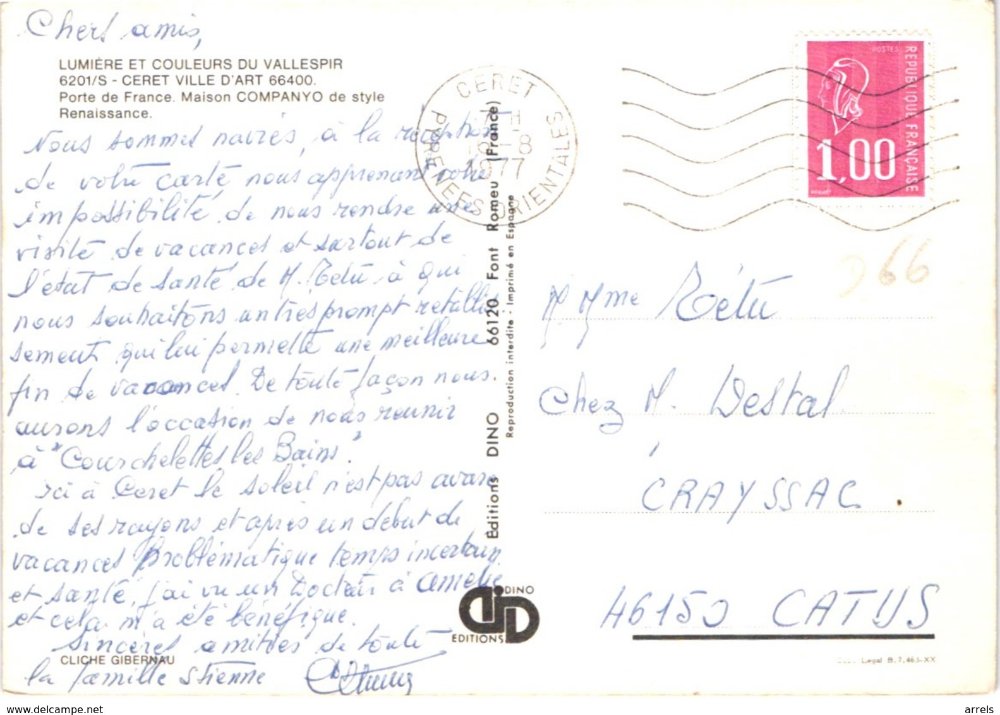 Chers amis,
LUMIÈRE ET COULEURS DU VALLESPIR
6201/S - CERET VILLE D'ART 66400.
Porte de France. Maison COMPANYO de style
Renaissance.
Nous sommes navrés, à la réception
de votre carte nous apprenant votre
impossibilité de nous rendre une
visite de vacances et surtout de
l'état de santé de M. Tétu à qui
nous souhaitons un très prompt rétablis
sement qui lui permette une meilleure
fin de vacances. De toute façon nous
aurons l'occasion de nous réunir
à "Courchelettes les Bains".
Ici à Ceret le soleil n'est pas avare
de ses rayons et après un début de
vacances problématique temps incertain
et santé, j'ai vu un Docteur à Amélie
et cela m'a été bénéfique.
Sincères amitiés de toute
la famille Stienne
CLICHE GIBERNAU
CERET
18 -8
1977
PYRENEES ORIENTALES
Éditions DINO 66120 Font Romeu (France)
Reproduction interdite - Imprimé en Espagne
DINO
EDITIONS
POSTES
REPUBLIQUE FRANÇAISE
1,00
D66
M Mme Tétu
Chez M. Destal
CRAYSSAC
46150 CATUS
Legal B. 7.463-XX
delcampe.net
arrels